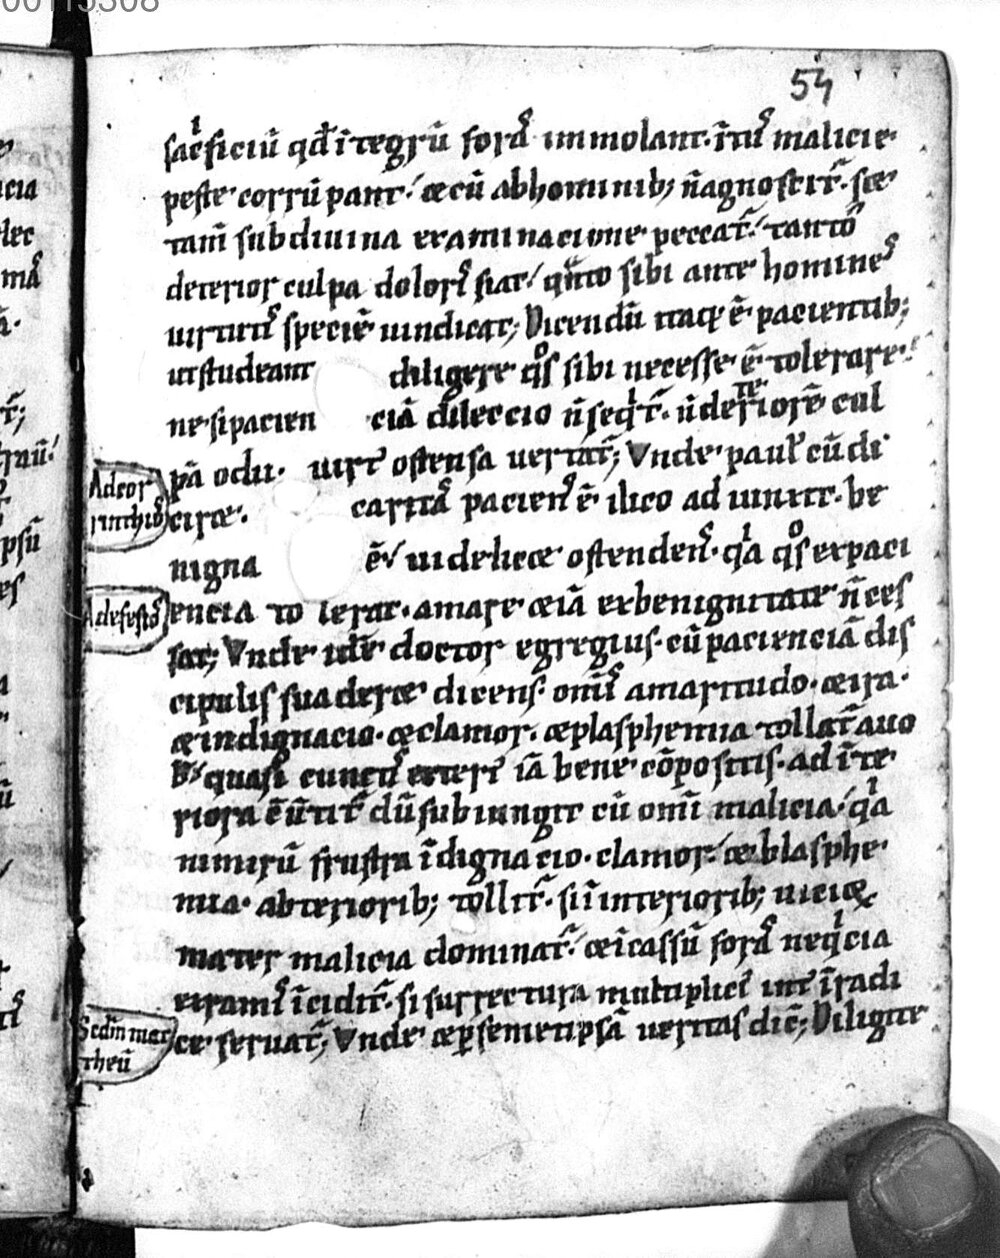 00115308
54
sac̄ficiū qđ ītegrū forᷤ immolant. ītuˢ malicie
peste corrūpant; & cū abhominib; ñ agnoscit̄. s&
tam̄ sub diuina examinacione peccat̄; tanto
deterior culpa doloris fiat; qͣnto sibi ante homines
uirtutis speciē uindicat; Dicendū itaq; ē pacientib;
ut studeant diligere qᵒs sibi necesse ē tolerare.
ne si pacienciā dileccio ñ seqⁱt̄. ñ deteriorē cul
pā odii. uirt ostensa uertat̄; Vnde paulꝰ cū di
Ad cor
rinthioˢ
cer&. caritas paciens ē ilico adiunxit. be
nigna ē; uidelic& ostendens. qⁱa qᵒs ex paci
Ad efesioˢ
encia tolerat. amare &iā ex benignitate ñ ces
sat; Vnde idē doctor egregius. cū pacienciā dis
cipulis suader& dicens. omˢ amaritudo. & ira.
& indignacio. & clamor. & plasphemia tollat̄ a uo
b; quasi cunctis exteris iā bene cōpositis. ad īte
riora ūtit̄ dū subiungit cū omī malicia; qⁱa
nimirū frustra īdignacio. clamor; & blasphe
mia. ab teriorib; tollit̄. si ī interiorib; uicioꝝ
mater malicia dominat̄; & īcassū forᷤ neqⁱcia
ex ramis īcidit̄. si surrectura multiplicī int̄ īradi
Scdm̄ mat
theū
ce seruat̄; Vnde & ꝑ semetipsā ueritas dic̄; Diligite